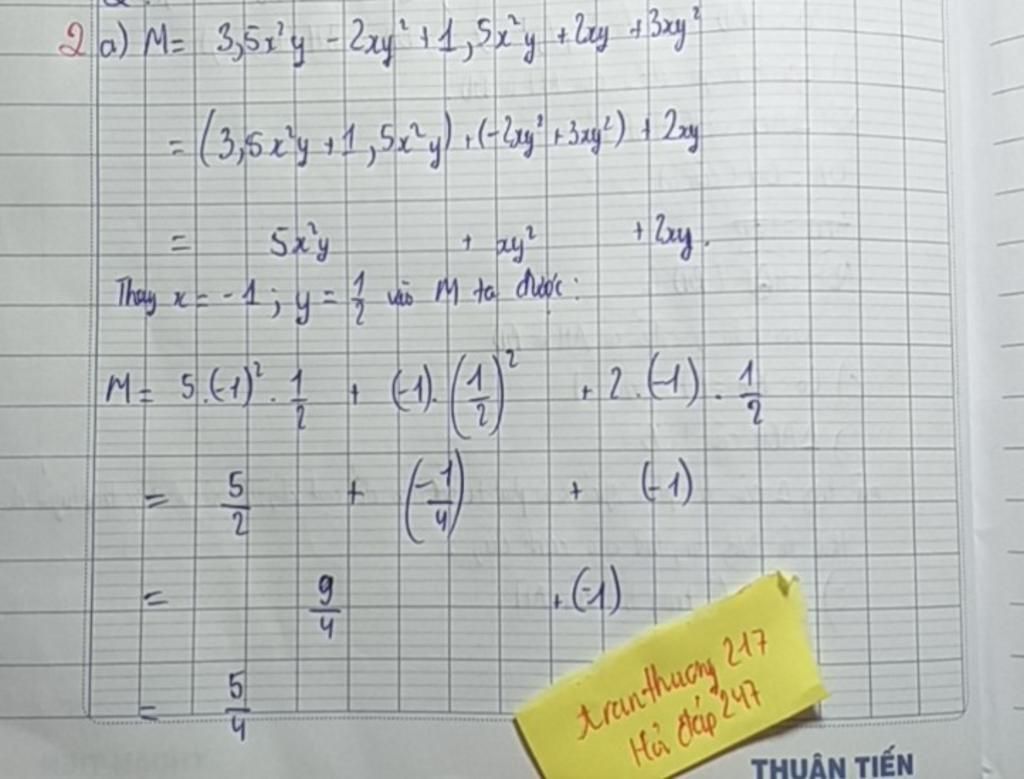 2 a) M = 3,5x²y - 2xy² + 1,5x²y + 2xy + 3xy²
= (3,5x²y + 1,5x²y) + (-2xy² + 3xy²) + 2xy
= 5x²y + xy² + 2xy.
Thay x = -1; y = 1/2 vào M ta được:
M = 5.(-1)² . 1/2 + (-1).(1/2)² + 2.(-1) . 1/2
= 5/2 + (-1/4) + (-1)
= 9/4 + (-1)
= 5/4
tranthuong 217
Hỏi đáp 247
THUẬN TIẾN